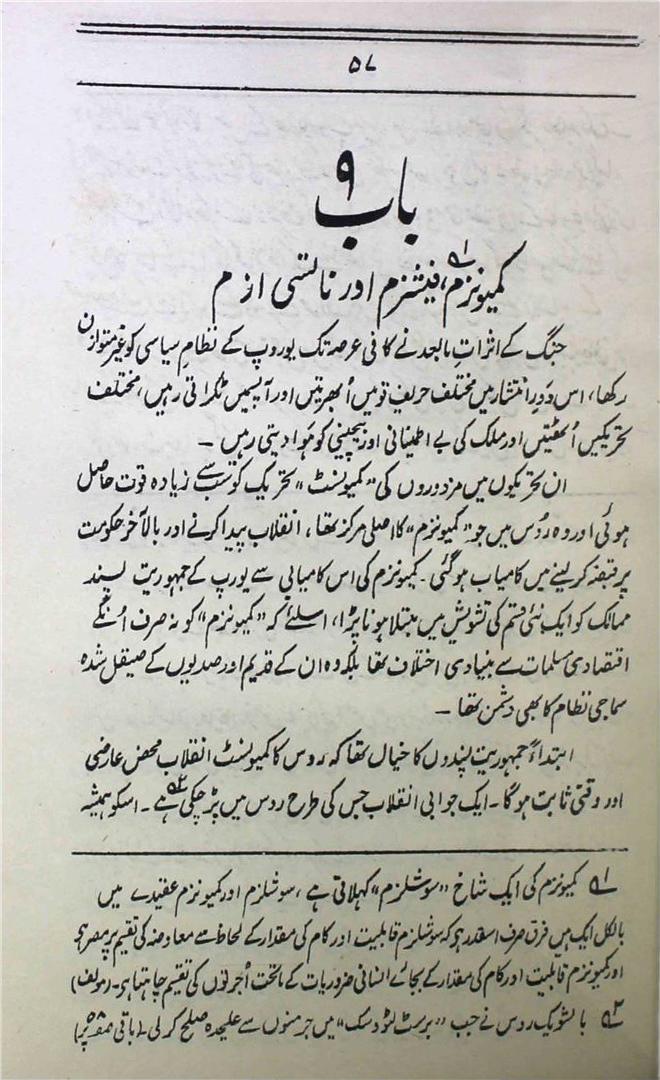 ۵۷
باب ۹
کمیونزم۱؎، فیشزم اور ناتسی ازم
جنگ کے اثراتِ مابعد نے کافی عرصہ تک یوروپ کے نظامِ سیاسی کو غیر متوازن
رکھا، اس دَورِ انتشار میں مختلف حریف قومیں اُبھرتیں اور آپسمیں ٹکراتی رہیں، مختلف
تحریکیں اُٹھتیں اور ملک کی بے اطمینانی اور بیچینی کو ہَوا دیتی رہیں ۔
ان تحریکوں میں مزدوروں کی "کمیونسٹ" تحریک کو سَب سے زیادہ قوت حاصل
ہوئی اور وہ رُوس میں جو "کمیونزم" کا اصلی مرکز تھا، انقلاب پیدا کرنے اور بالآخر حکومت
پر قبضہ کر لینے میں کامیاب ہو گئی۔ کمیونزم کی اس کامیابی سے یورپ کے جمہوریت پسند
ممالک کو ایک نئی قسم کی تشویش میں مبتلا ہونا پڑا، اسلئے کہ "کمیونزم" کو نہ صرف اُنکے
اقتصادی مسلمات سے بنیادی اختلاف تھا بلکہ وہ ان کے قدیم اور صدیوں کے صیقل شدہ
سماجی نظام کا بھی دشمن تھا ۔
ابتداءً جمہوریت پسندوں کا خیال تھا کہ روس کا کمیونسٹ انقلاب محض عارضی
اور وقتی ثابت ہوگا۔ ایک جوابی انقلاب جس کی طرح روس میں پڑ چکی ہے۲؎۔ اسکو ہمیشہ
۱؎ کمیونزم کی ایک شاخ "سوشلزم" کہلاتی ہے، سوشلزم اور کمیونزم عقیدے میں
بالکل ایک ہیں فرق صرف اسقدر ہو کہ سوشلزم قابلیت اور کام کی مقدار کے لحاظ سے معاوضہ کی تقسیم پر مصر ہو
اور کمیونزم قابلیت اور کام کی مقدار کے بجائے انسانی ضروریات کے ماتحت اُجرتوں کی تقسیم چاہتا ہو۔ (مولف)
۲؎ بالشویک روس نے جب "برسٹ لٹوڈسک" میں جرمنوں سے علیحدہ صلح کر لی۔ (باقی صفحہ ۵۸ پر)